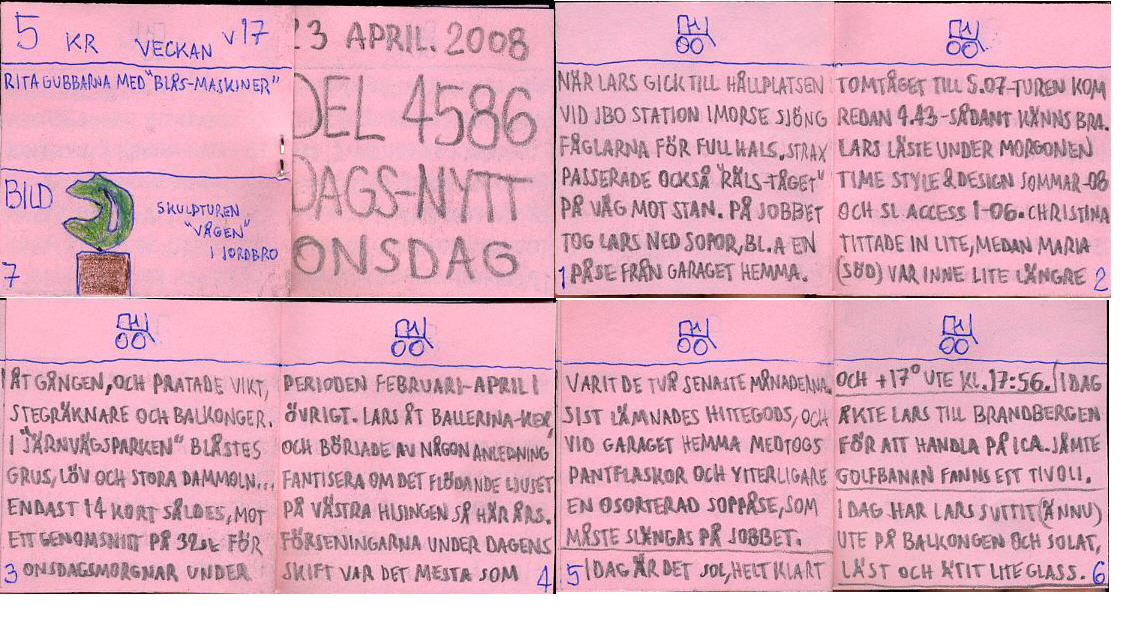 5 KR VECKAN V17
RITA GUBBARNA MED "BLÅS-MASKINER"
BILD
SKULPTUREN
"VÅGEN"
I JORDBRO
7
23 APRIL. 2008
DEL 4586
DAGS-NYTT
ONSDAG
NÄR LARS GICK TILL HÅLLPLATSEN
VID JBO STATION IMORSE SJÖNG
FÅGLARNA FÖR FULL HALS. STRAX
PASSERADE OCKSÅ "RÄLS-TÅGET"
PÅ VÄG MOT STAN. PÅ JOBBET
TOG LARS NED SOPOR, BL.A EN
1 PÅSE FRÅN GARAGET HEMMA.
TOMTÅGET TILL 5.07-TUREN KOM
REDAN 4.43-SÅDANT KÄNNS BRA.
LARS LÄSTE UNDER MORGONEN
TIME STYLE & DESIGN SOMMAR-08
OCH SL ACCESS 1-06. CHRISTINA
TITTADE IN LITE, MEDAN MARIA
(SÖD) VAR INNE LITE LÄNGRE 2
ÅT GÅNGEN, OCH PRATADE VIKT,
STEGRÄKNARE OCH BALKONGER.
I "JÄRNVÄGSPARKEN" BLÅSTES
GRUS, LÖV OCH STORA DAMMOLN...
ENDAST 14 KORT SÅLDES, MOT
ETT GENOMSNITT PÅ 32st FÖR
3 ONSDAGSMORGNAR UNDER
PERIODEN FEBRUARI-APRIL I
ÖVRIGT. LARS ÅT BALLERINA-KEX,
OCH BÖRJADE AV NÅGON ANLEDNING
FANTISERA OM DET FLÖDANDE LJUSET
PÅ VÄSTRA HISINGEN SÅ HÄR ÅRS.
FÖRSENINGARNA UNDER DAGENS
SKIFT VAR DET MESTA SOM 4
VARIT DE TVÅ SENASTE MÅNADERNA.
SIST LÄMNADES HITTEGODS, OCH
VID GARAGET HEMMA MEDTOGS
PANTFLASKOR OCH YTTERLIGARE
EN OSORTERAD SOPPÅSE, SOM
MÅSTE SLÄNGAS PÅ JOBBET.
5 IDAG ÄR DET SOL, HELT KLART
OCH +17° UTE KL. 17:56. IDAG
ÅKTE LARS TILL BRANDBERGEN
FÖR ATT HANDLA PÅ ICA. JÄMTE
GOLFBANAN FANNS ETT TIVOLI.
IDAG HAR LARS SUTTIT (ÄNNU)
UTE PÅ BALKONGEN OCH SOLAT,
LÄST OCH ÄTIT LITE GLASS. 6